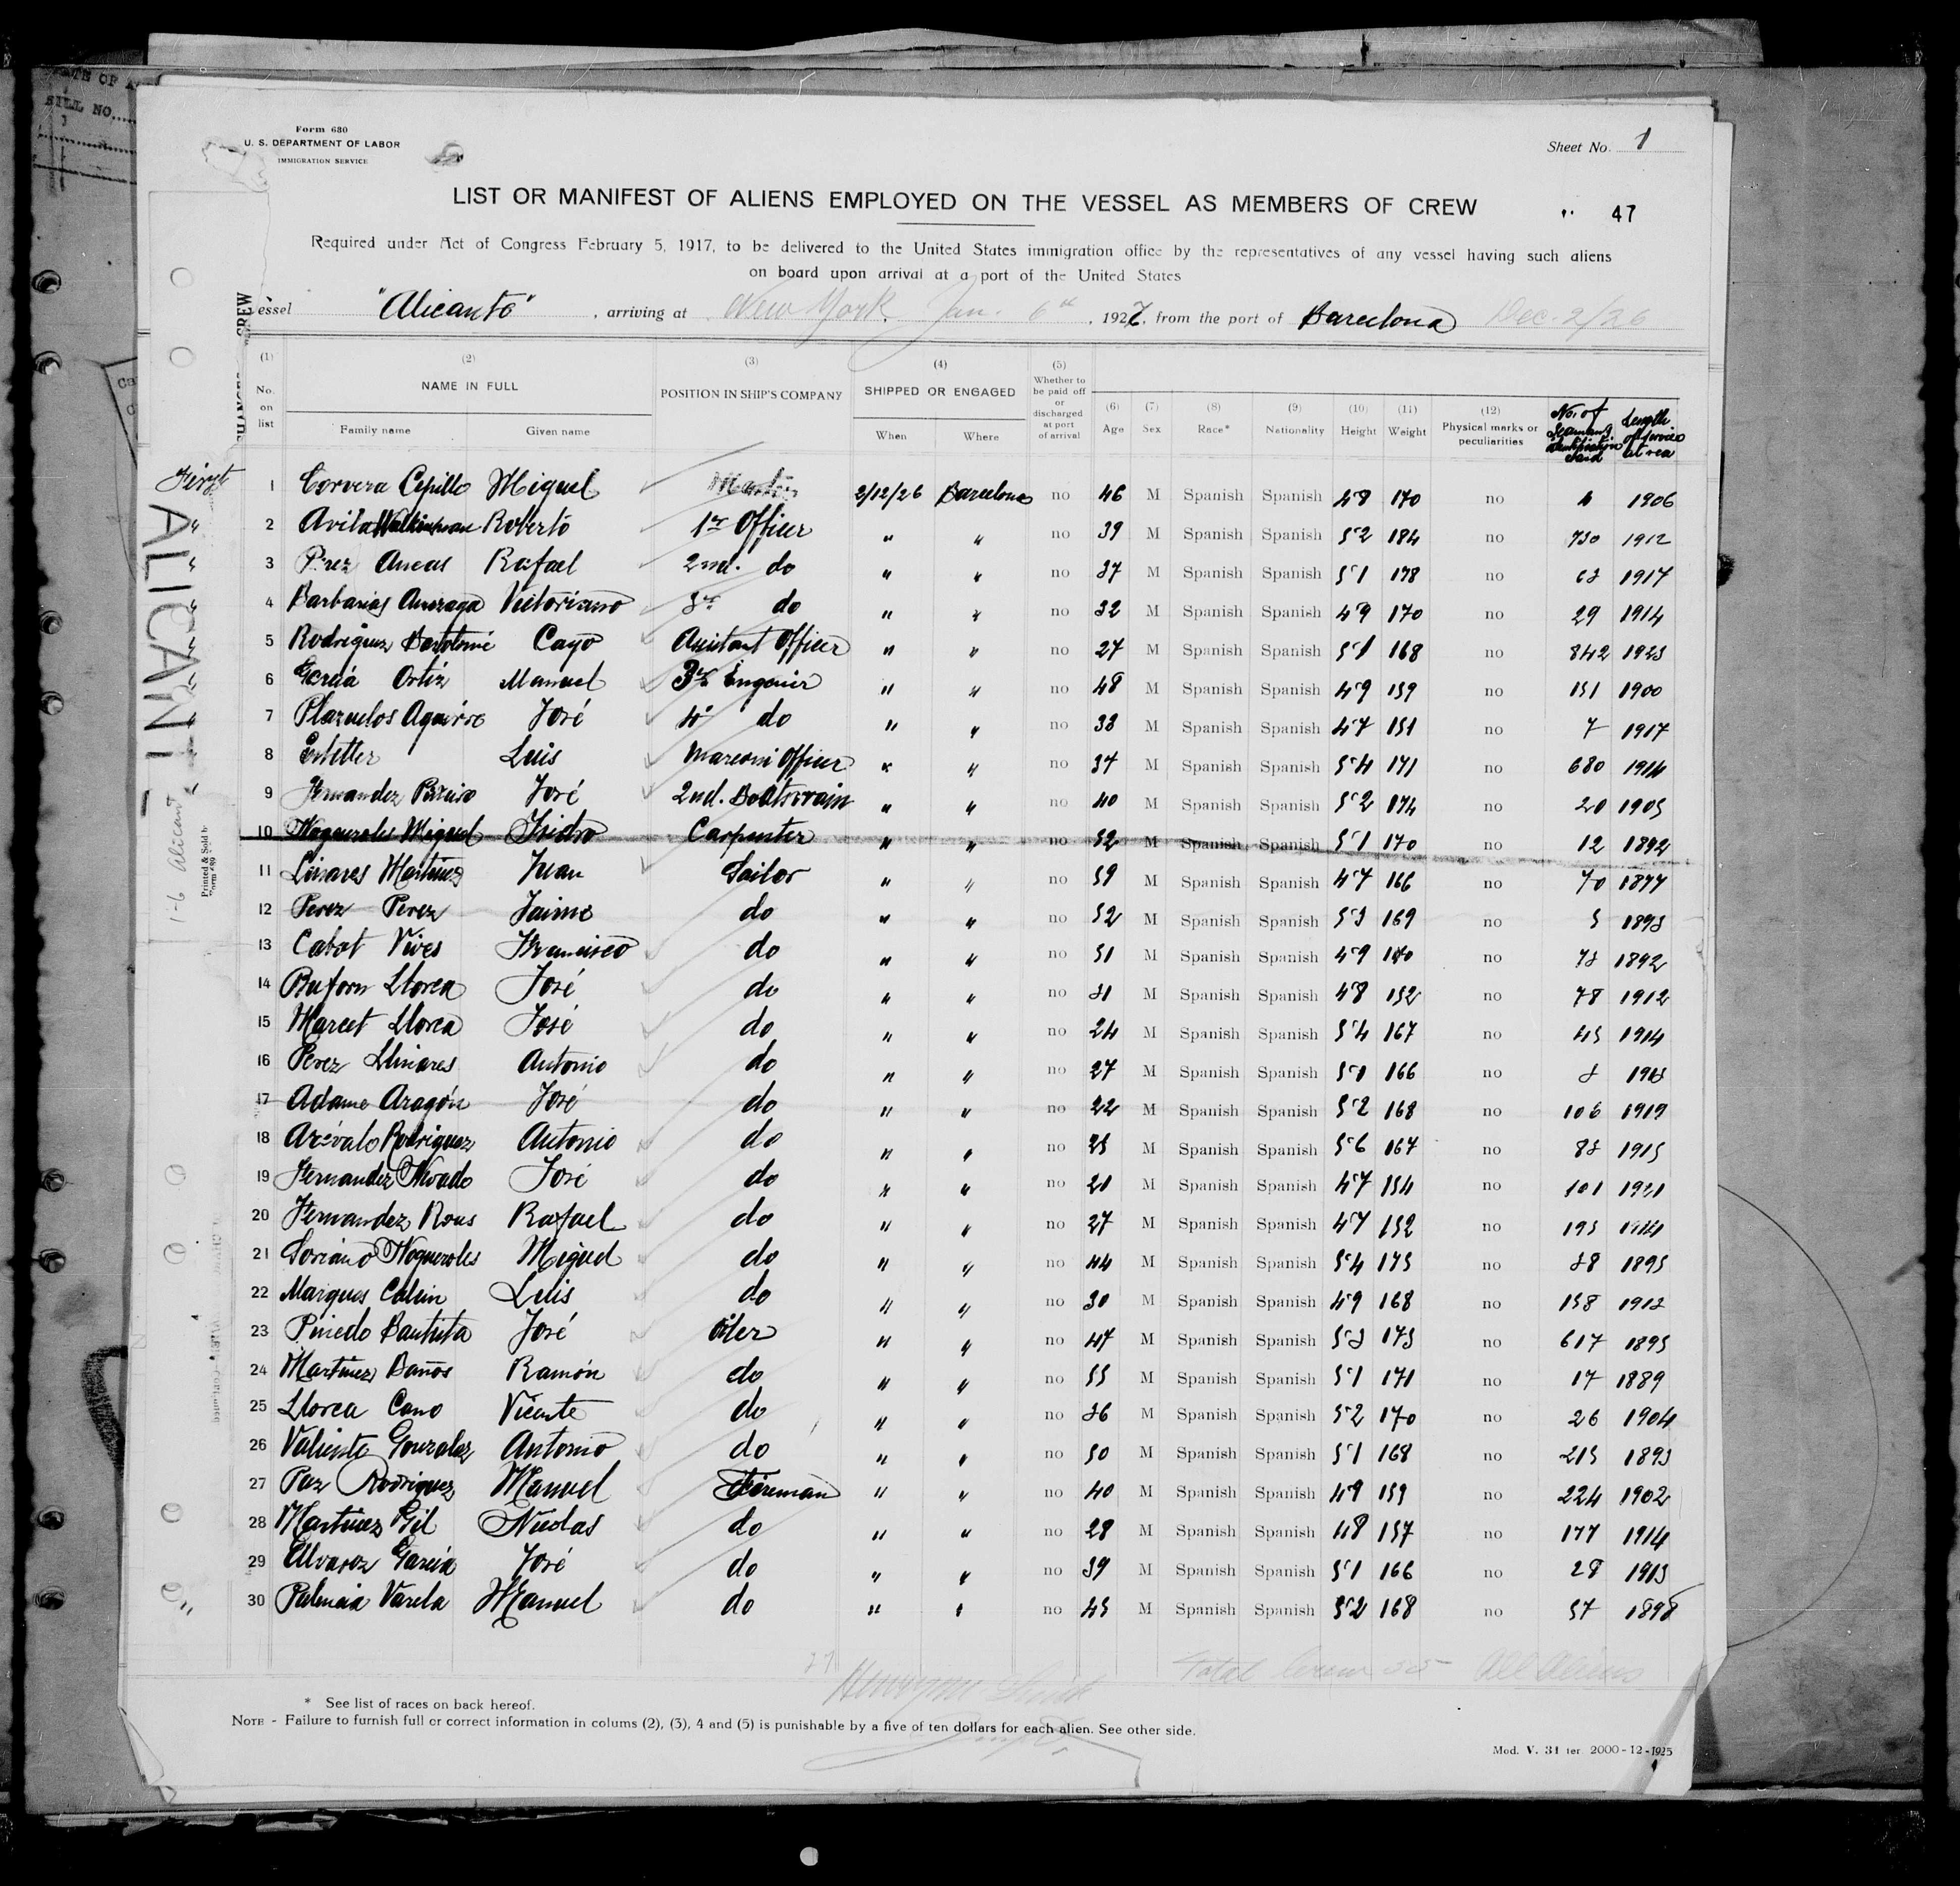 Form 680
U. S. DEPARTMENT OF LABOR
IMMIGRATION SERVICE
Sheet No. 1
LIST OR MANIFEST OF ALIENS EMPLOYED ON THE VESSEL AS MEMBERS OF CREW
47
Required under Act of Congress February 5, 1917, to be delivered to the United States immigration office by the representatives of any vessel having such aliens
on board upon arrival at a port of the United States
essel "Alicante", arriving at New York, Jan. 6th, 1927, from the port of Barcelona Dec. 2/26
(1) (2) (3) (4) (5) (6) (7) (8) (9) (10) (11) (12)
No. on list NAME IN FULL Family name Given name POSITION IN SHIP'S COMPANY SHIPPED OR ENGAGED When Where Whether to be paid off or discharged at port of arrival Age Sex Race* Nationality Height Weight Physical marks or peculiarities No. of Seaman's Identification Card Length of Service at sea
First
1 Corvera Cepillo Miguel 2/12/26 Barcelona no 46 M Spanish Spanish 4'8 170 no 1906
2 Avila Roberto 1st Officer " " no 39 M Spanish Spanish 5'2 184 no 730 1912
3 Perez Aneas Rafael 2nd. do " " no 37 M Spanish Spanish 5'1 178 no 63 1917
4 Barbarias Victoriano 3rd do " " no 32 M Spanish Spanish 4'9 170 no 29 1914
5 Rodriguez Bartolomé Cayo Assistant Officer " " no 27 M Spanish Spanish 5'1 168 no 842 1923
6 García Ortiz Manuel 3rd Engenier " " no 48 M Spanish Spanish 4'9 159 no 151 1900
7 Plazuelos Aguirre José 4º do " " no 33 M Spanish Spanish 4'7 151 no 7 1917
8 Luis Marconi Officer " " no 34 M Spanish Spanish 5'4 171 no 680 1914
9 Fernandez José 2nd. Boatswain " " no 40 M Spanish Spanish 5'2 174 no 20 1905
10 Nogueroles Miguel Isidro Carpenter " " no 52 M Spanish Spanish 5'1 170 no 12 1892
11 Linares Martinez Juan Sailor " " no 59 M Spanish Spanish 4'7 166 no 70 1877
12 Perez Perez Jaime do " " no 52 M Spanish Spanish 5'3 169 no 5 1893
13 Cabot Vives Francisco do " " no 51 M Spanish Spanish 4'9 no 73 1892
14 Buforn Llorca José do " " no 31 M Spanish Spanish 4'8 152 no 78 1912
15 Marcet Llorca José do " " no 24 M Spanish Spanish 5'4 167 no 45 1914
16 Perez Llinares Antonio do " " no 27 M Spanish Spanish 5'1 166 no 3
17 Adame Aragón José do " " no 22 M Spanish Spanish 5'2 168 no 106 1919
18 Arévalo Rodriguez Antonio do " " no 25 M Spanish Spanish 5'6 167 no 83 1915
19 Fernandez Nvado José do " " no 21 M Spanish Spanish 4'7 154 no 101 1921
20 Fernandez Rous Rafael do " " no 27 M Spanish Spanish 4'7 152 no 195 1914
21 Soriano Nogueroles Miguel do " " no 44 M Spanish Spanish 5'4 175 no 38 1895
22 Marques Luis do " " no 30 M Spanish Spanish 4'9 168 no 158 1913
23 Pinedo Bautista José Oiler " " no 47 M Spanish Spanish 5'3 173 no 617 1895
24 Martinez Baños Ramón do " " no 55 M Spanish Spanish 5'1 171 no 17 1889
25 Llorca Cano Vicente do " " no 36 M Spanish Spanish 5'2 170 no 26 1904
26 Valiente Gonzalez Antonio do " " no 50 M Spanish Spanish 5'1 168 no 215 1893
27 Paz Rodriguez Manuel Fireman " " no 40 M Spanish Spanish 4'9 159 no 224 1902
28 Martinez Gil Nicolas do " " no 28 M Spanish Spanish 4'8 157 no 177 1914
29 Alvarez García José do " " no 39 M Spanish Spanish 5'1 166 no 28 1913
30 Palencia Varela Manuel do " " no 45 M Spanish Spanish 5'2 168 no 57 1898
27
Total Crew 55 All Aliens
* See list of races on back hereof.
NOTE - Failure to furnish full or correct information in colums (2), (3), 4 and (5) is punishable by a five of ten dollars for each alien. See other side.
Mod. V. 31 ter 2000-12-1925
ALICANTE
1-6 Alicante
Printed & Sold by
CREW
BILL NO.